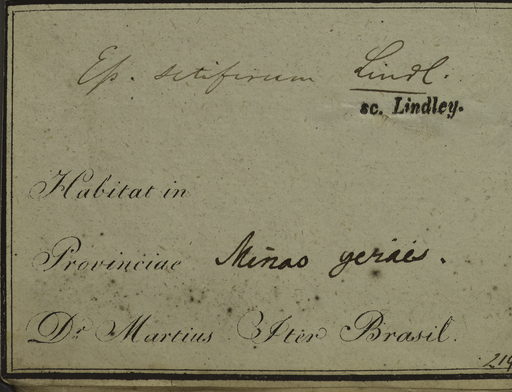 Ep. setiferum Lindl.
sc. Lindley.
Habitat in
Provinciae Minas geraës.
Dr. Martius Iter Brasil.
219